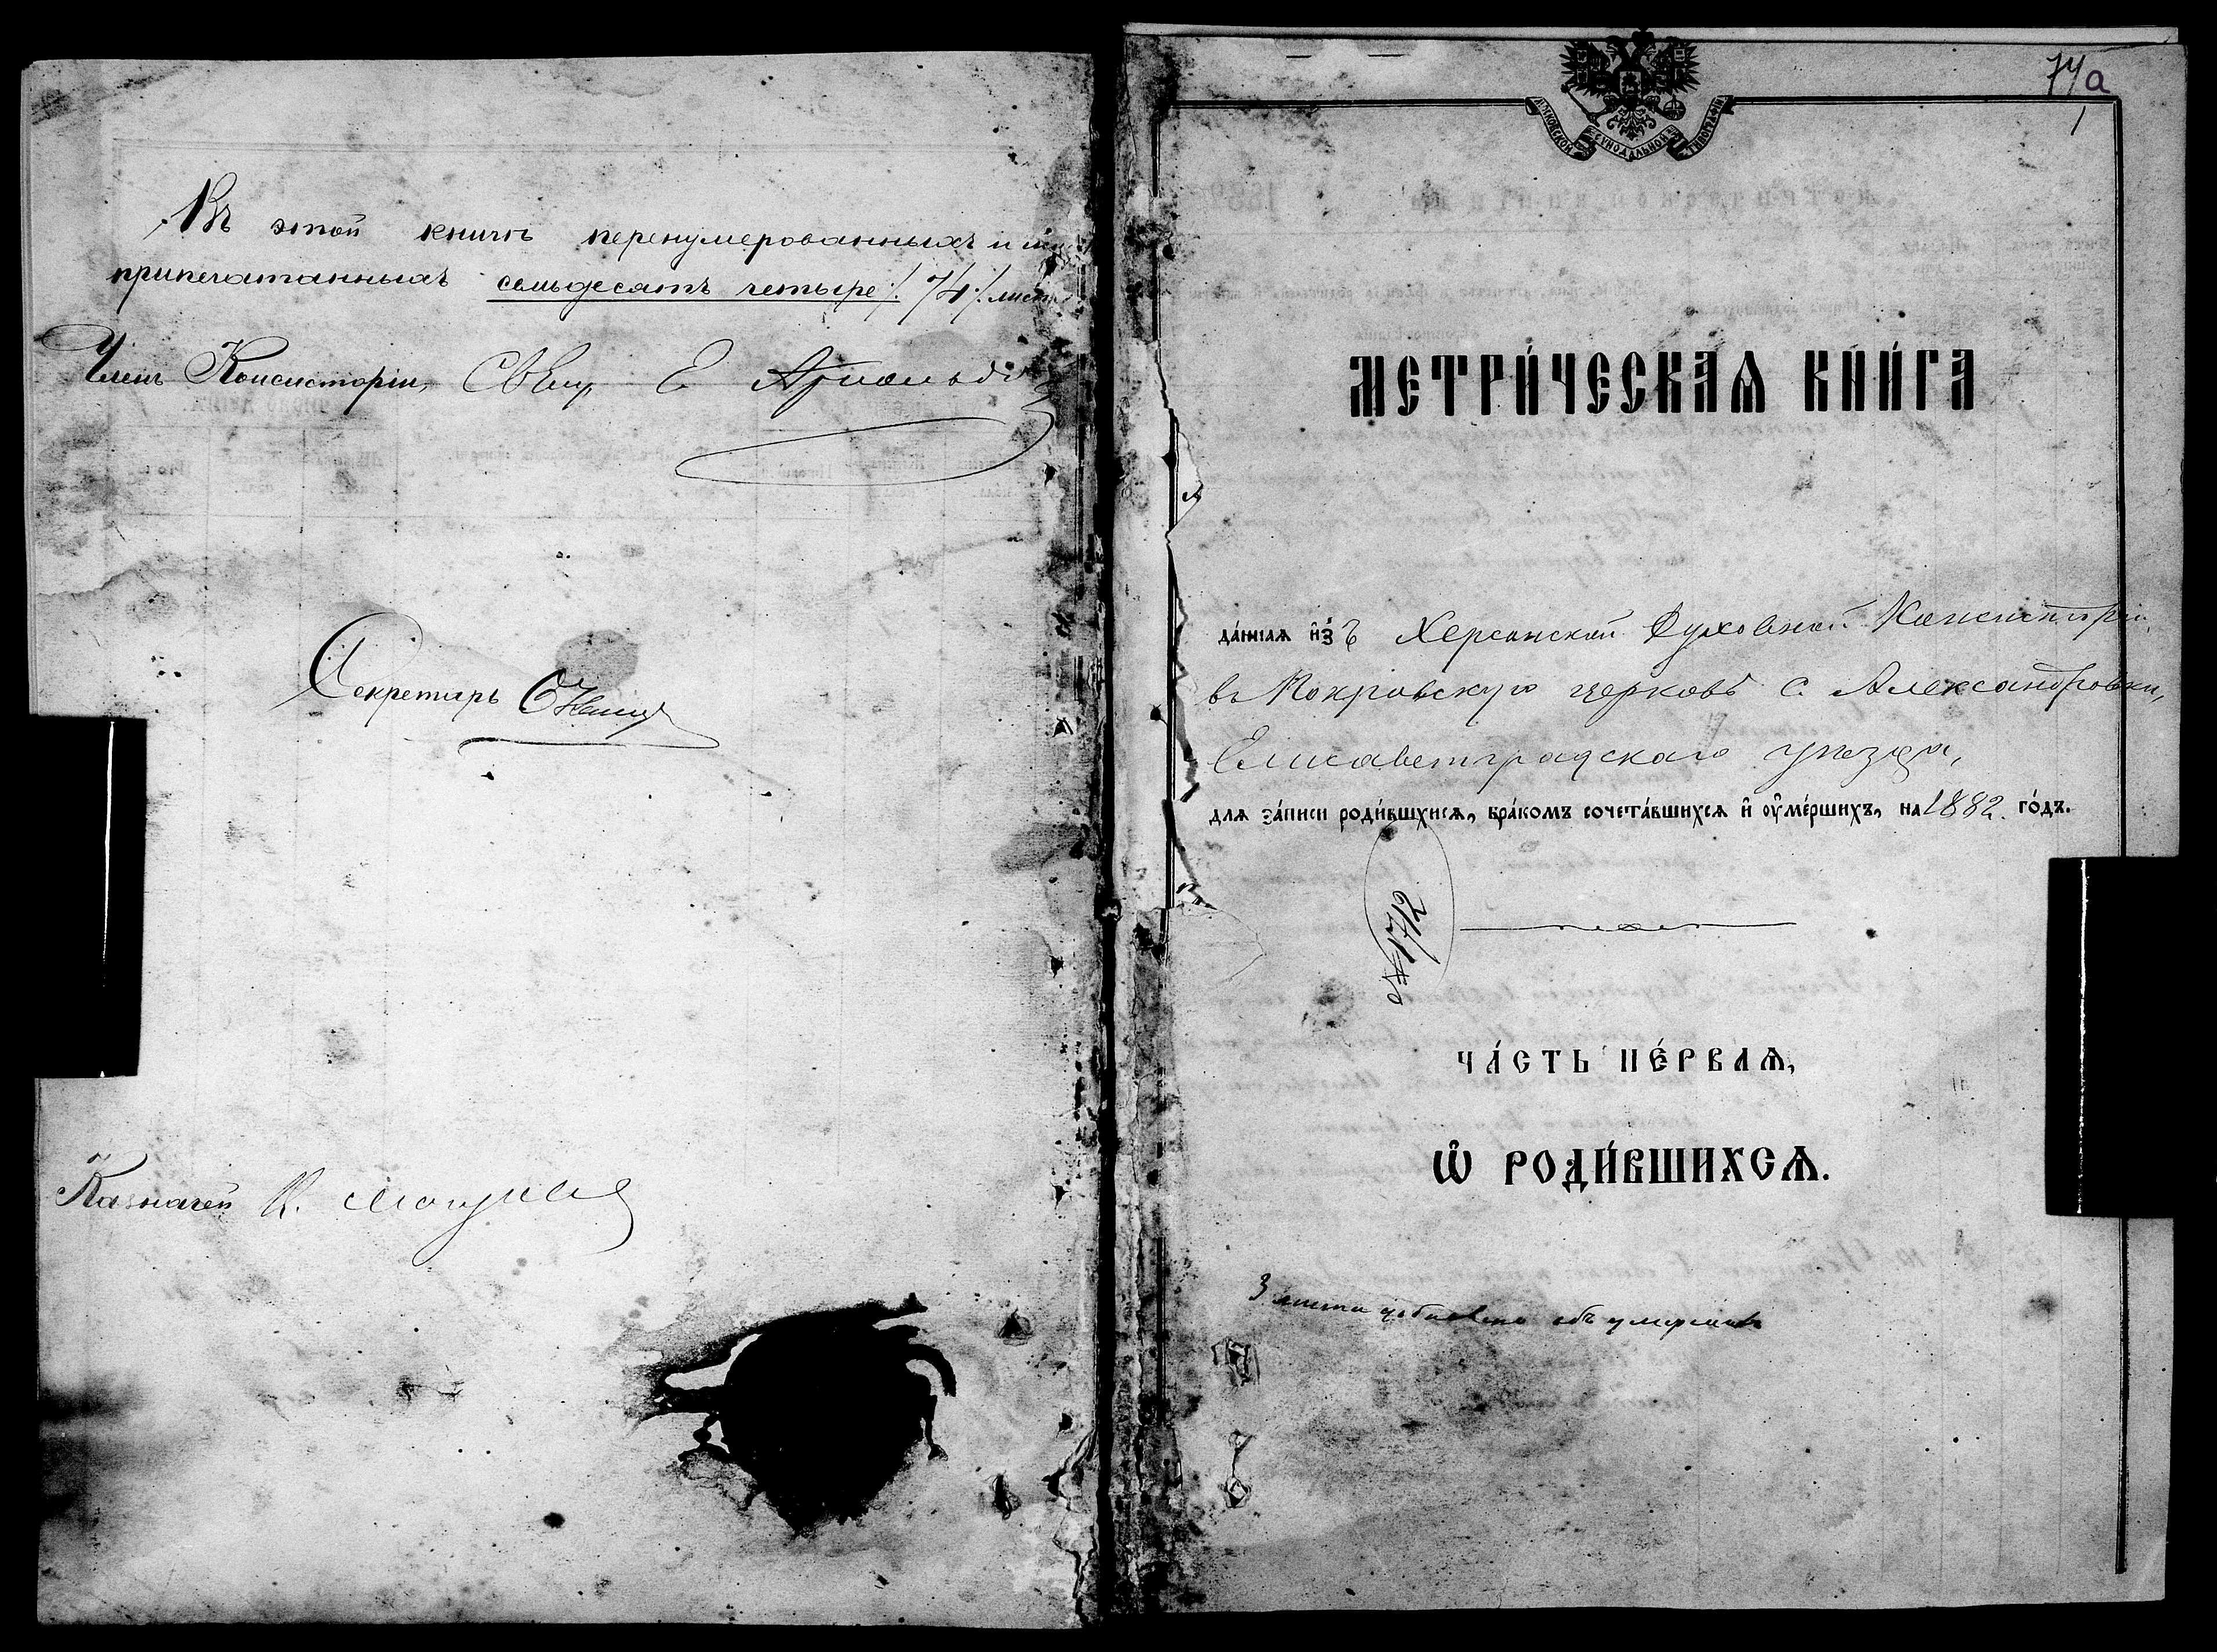 Въ этой книгѣ перенумерованныхъ и
припечатанныхъ семьдесятъ четыре /74/ лист
Членъ Консисторіи, Свящ. Е Арнольдъ
Секретарь
Казначей К.
74а
1
МОСКОВСКОЙ СУНОДАЛЬНОЙ ТИПОГРАФІИ
МЕТРИ́ЧЕСКАѦ КНИ́ГА
да́ннаѧ и҆́зъ Херсонской Духовной Консисторіи,
въ Покровскую церковь с. Александровки,
Елисаветградскаго уѣзда,
для за́писи роди́вшхисѧ, бра́комъ сочета́вшихсѧ и҆ ᲂу҆ме́ршихъ, на 1882. го́дъ.
№ 1712
ЧА́СТЬ ПЕ́РВАѦ,
Ѡ҆ РОДИ́ВШИХСѦ.
3 листа добавлено объ умершихъ